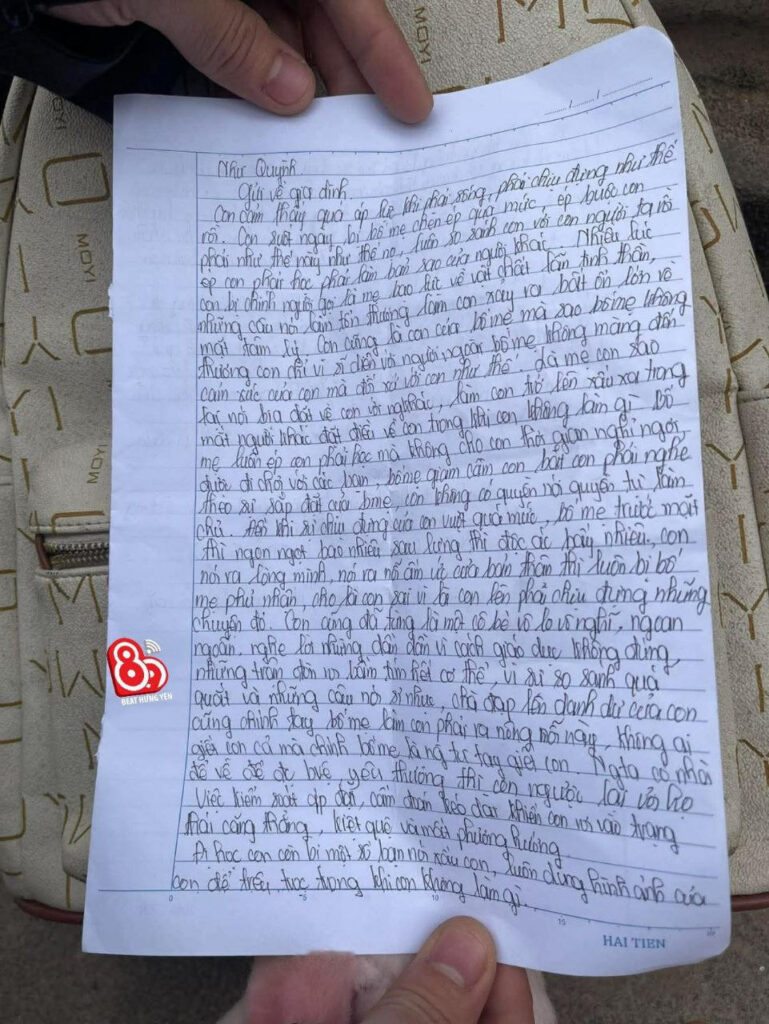 Như Quỳnh
Gửi về gia đình.
Con cảm thấy quá áp lực khi phải sống, phải chịu đựng như thế
rồi. Con suốt ngày bị bố mẹ chèn ép quá mức, ép buộc con
phải như thế này như thế nọ, luôn so sánh con với con người ta rồi
ép con phải học phải làm bản sao của người khác. Nhiều lúc
con bị chính người gọi là mẹ bạo lực về vật chất lẫn tinh thần,
những câu nói làm tổn thương làm con xảy ra bất ổn lớn về
mặt tâm lý. Con cũng là con của bố mẹ mà sao bố mẹ không
thương con chỉ vì sĩ diện với người ngoài bố mẹ không màng đến
cảm xúc của con mà đối xử với con như thế. Là mẹ con sao
lại nói bịa đặt về con với ngkhác, làm con trở lên xấu xa trong
mắt người khác đặt điều về con trong khi con không làm gì. Bố
mẹ luôn ép con phải học mà không cho con thời gian nghỉ ngơi,
được đi chơi với các bạn, bố mẹ giam cầm con bắt con phải nghe
theo sự sắp đặt của bmẹ, con không có quyền nói quyền tự làm
chủ. Đến khi sự chịu đựng của con vượt quá mức, bố mẹ trước mặt
thì ngon ngọt bao nhiêu sau lưng thì độc ác bấy nhiêu, con
nói ra lòng mình, nói ra nỗi ấm ức của bản thân thì luôn bị bố
mẹ phủ nhận, cho là con sai vì là con lên phải chịu đựng những
chuyện đó. Con cũng đã từng là một cô bé vô lo vô nghĩ, ngoan
ngoãn, nghe lời nhưng dần dần vì cách giáo dục không đúng,
những trận đòn roi bầm tím hết cơ thể, vì sự so sánh quá
quắt và những câu nói sỉ nhục, chà đạp lên danh dự của con
cũng chính tay bố mẹ làm con phải ra nông nỗi này, không ai
giết con cả mà chính bố mẹ là ng tự tay giết con. Ngta có nhà
để về để đc bvệ, yêu thương thì con ngược lại với họ
Việc kiểm soát áp đặt, cấm đoán kéo dài khiến con rơi vào trạng
thái căng thẳng, kiệt quệ và mất phương hướng
Đi học con còn bị một số bạn nói xấu con, luôn dùng hình ảnh của
con để trêu trọc trong khi con không làm gì.
0 5 10 15
HAI TIEN
MOYI
BEAT HƯNG YÊN